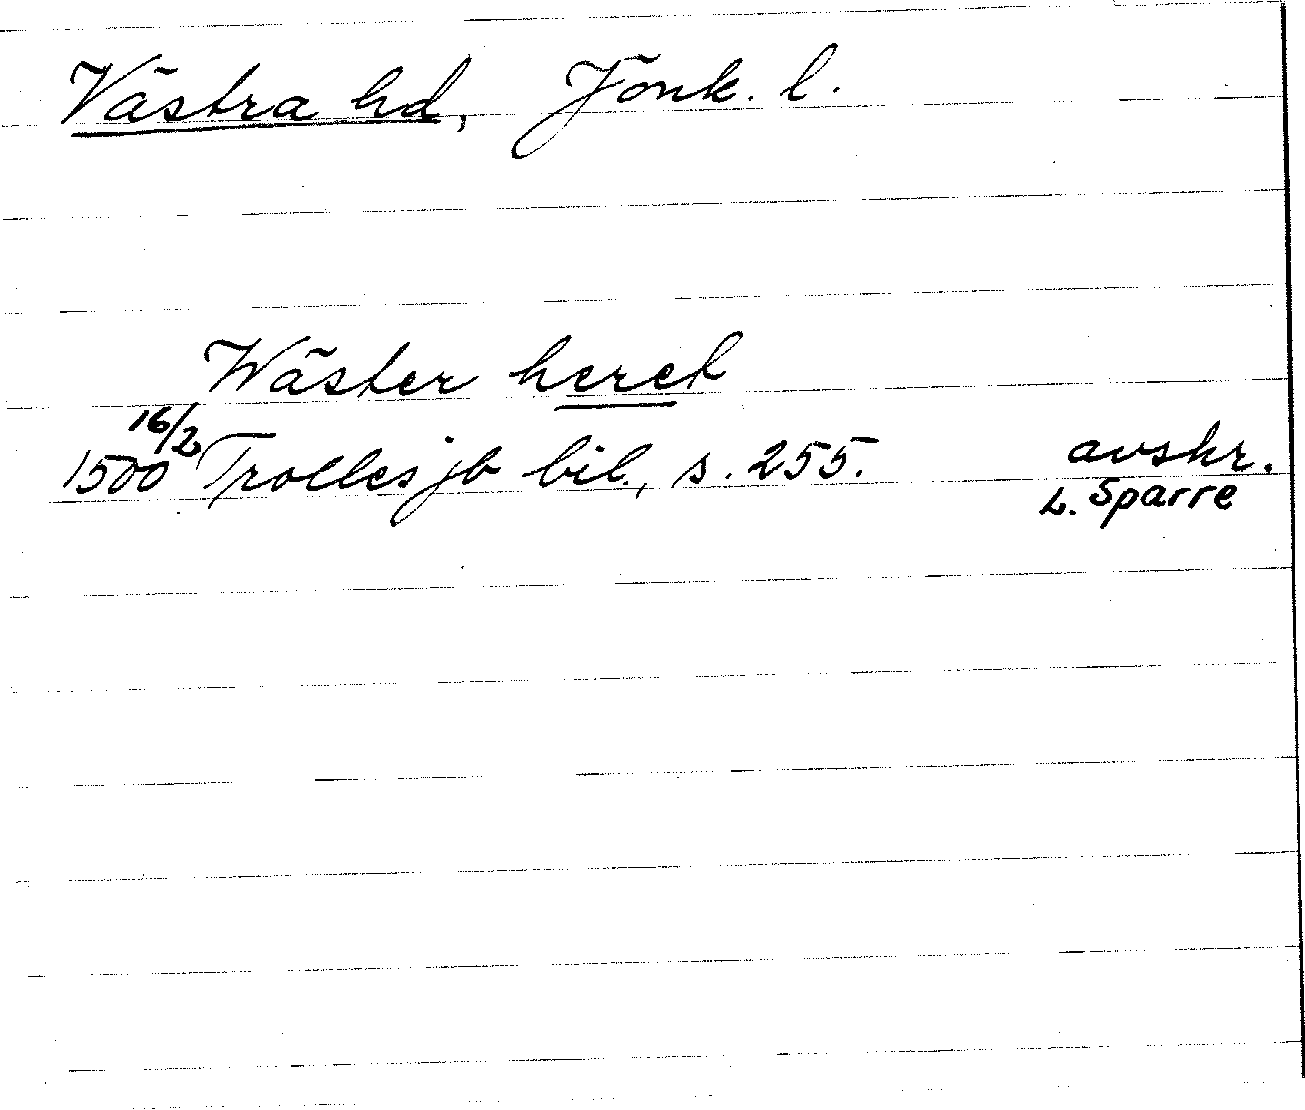 Västra hd, Jönk. l.
Wäster heret
16/2
1500 Trolles jb bil., s. 255. avskr.
L. Sparre